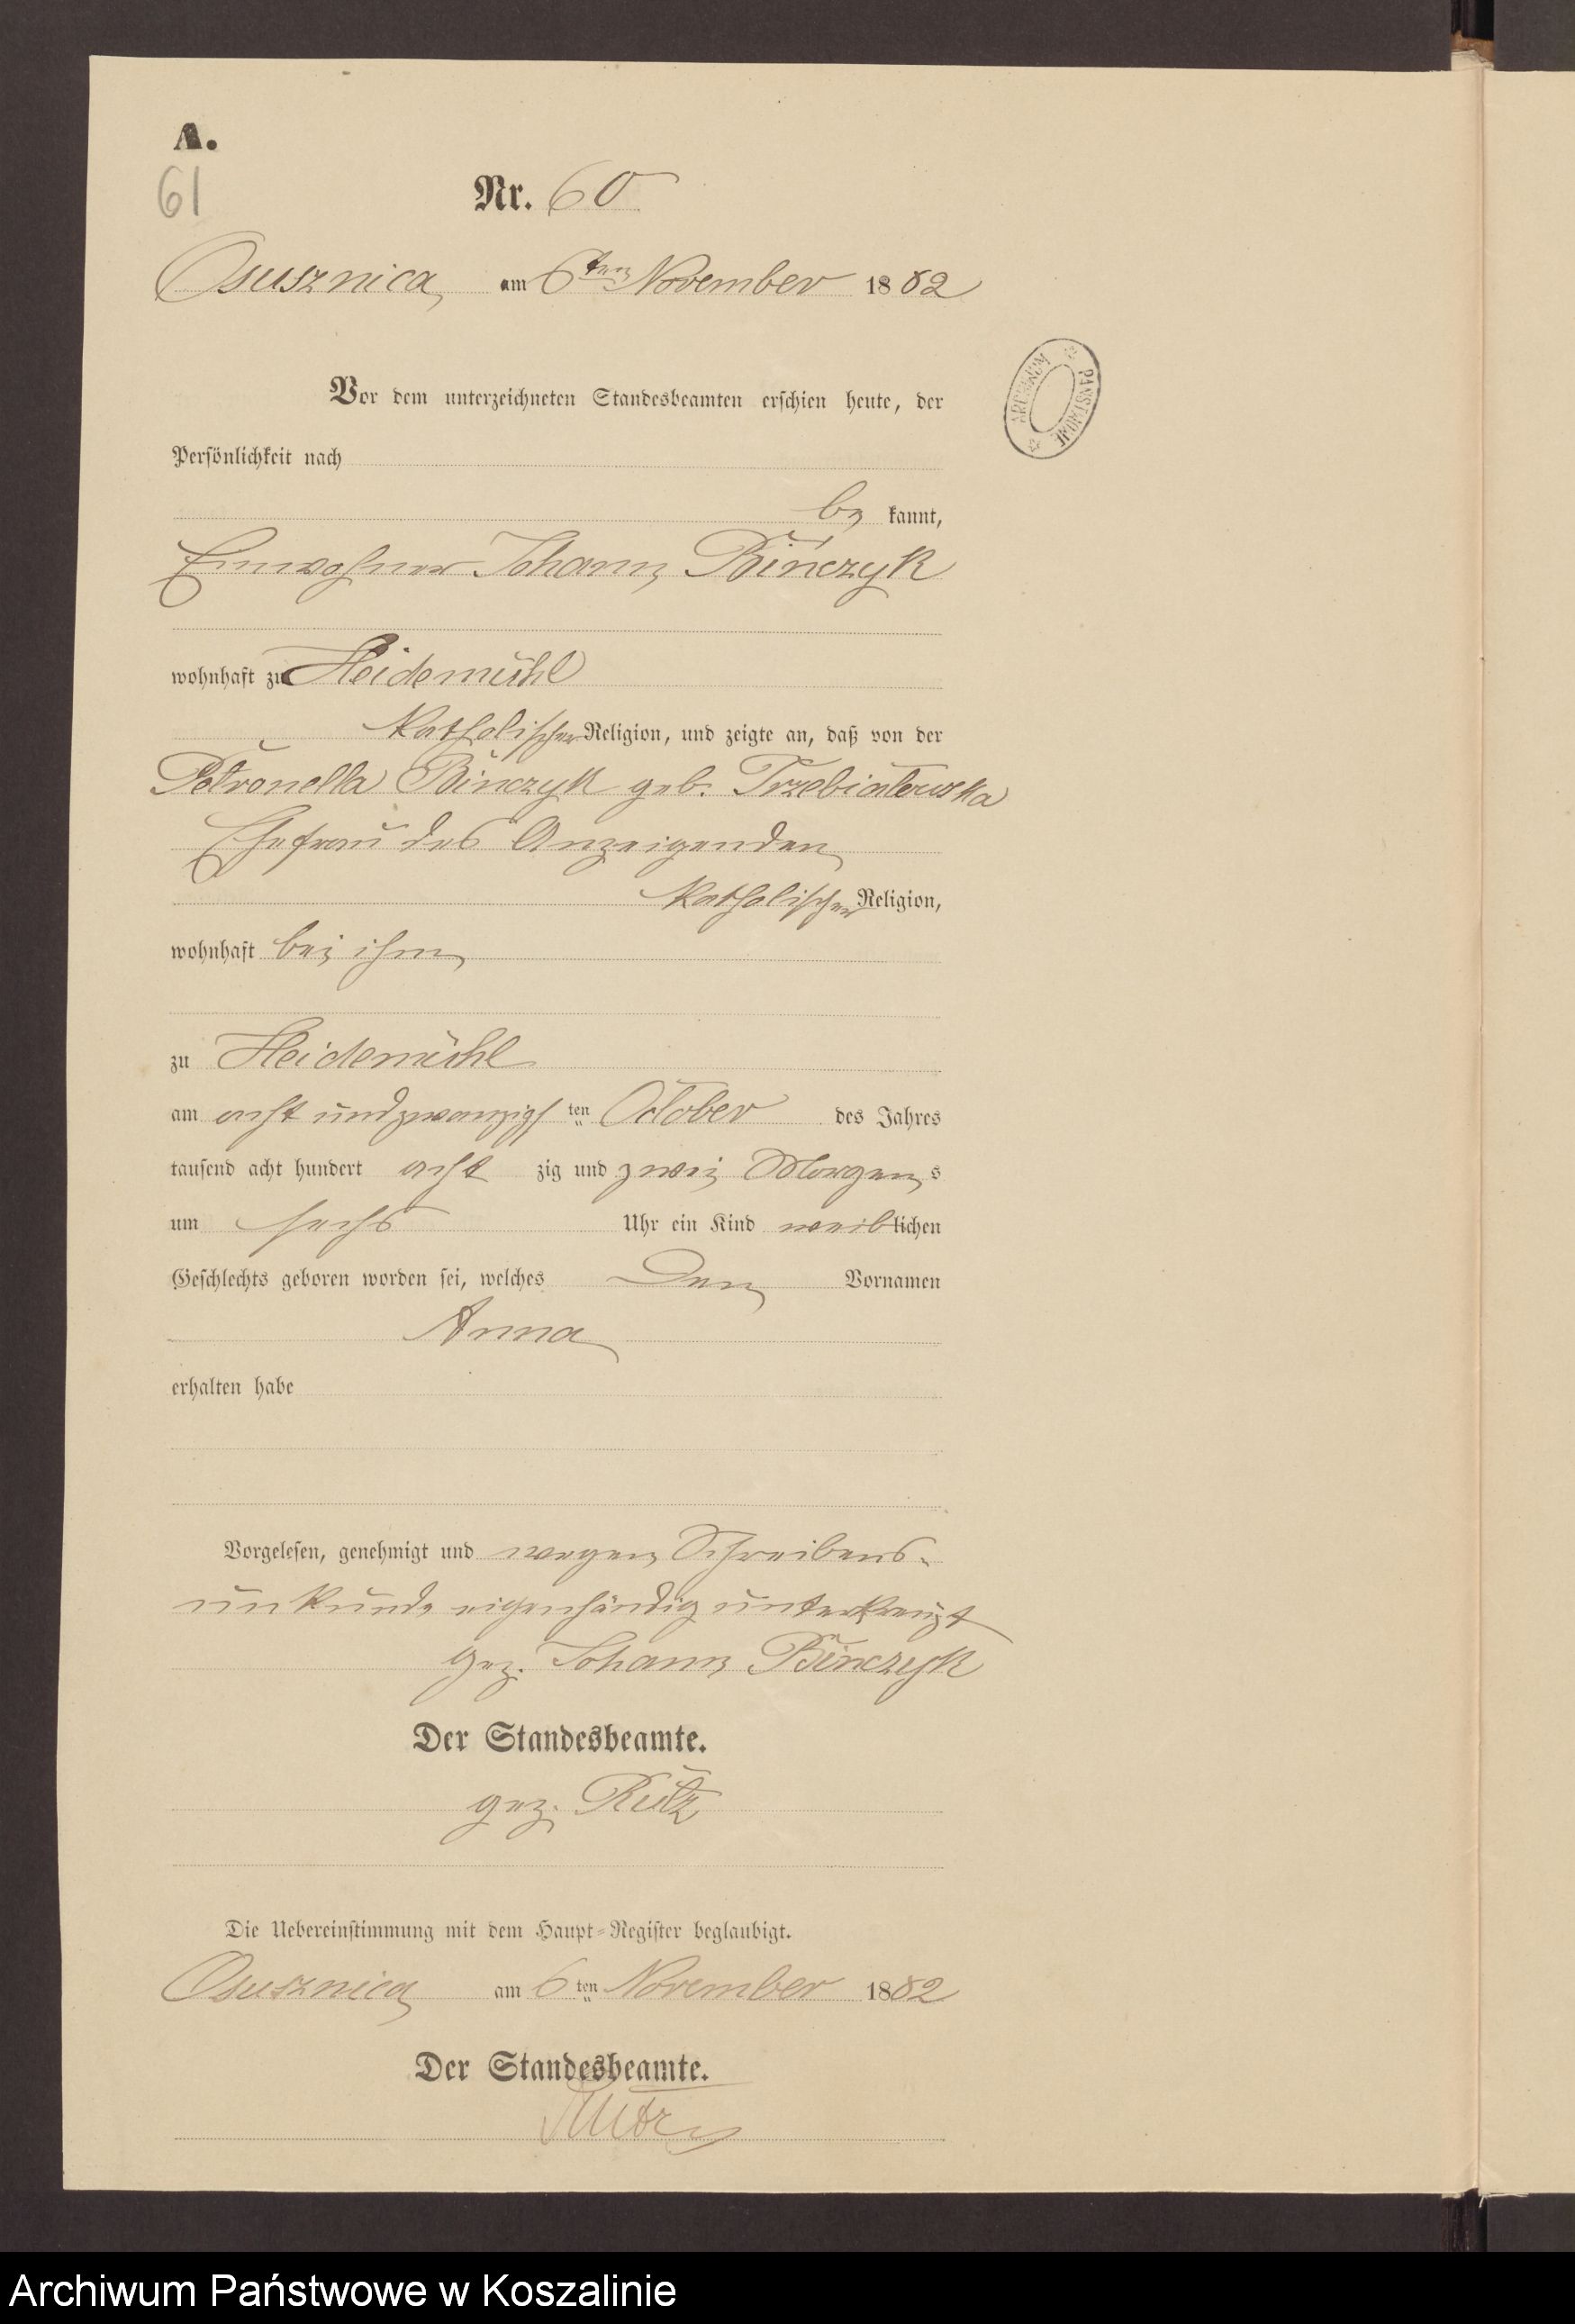 A.
61
Nr. 60
Osusznica, am 6ten November 1882
Vor dem unterzeichneten Standesbeamten erschien heute, der
Persönlichkeit nach
be kannt,
Einwohner Johann Bińczyk
wohnhaft zu Heidemühl
katholischer Religion, und zeigte an, daß von der
Petronella Binczyk geb. Trzebiatowska
Ehefrau des Anzeigenden
katholischer Religion,
wohnhaft bei ihm
zu Heidemühl
am acht und zwanzigsten October des Jahres
tausend acht hundert acht zig und zwei Morgens
um sechs Uhr ein Kind weiblichen
Geschlechts geboren worden sei, welches den Vornamen
Anna
erhalten habe
Vorgelesen, genehmigt und wegen Schreibens-
unkunde eigenhändig unterkreuzt
gez. Johann Binczyk
Der Standesbeamte.
gez. Rütz
Die Uebereinstimmung mit dem Haupt-Register beglaubigt.
Osusznica am 6ten November 1882
Der Standesbeamte.
Rütz
ARCHIWUM PAŃSTWOWE
Archiwum Państwowe w Koszalinie